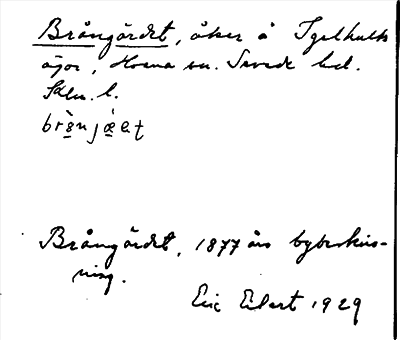 Brångärdet, åker å Igelhults
ägor, Horna sn. Sevede hd.
Klm. l.
brånjæ̀et
Brångärdet, 1877 års bybeskriv-
ning.
Eric Elert 1929